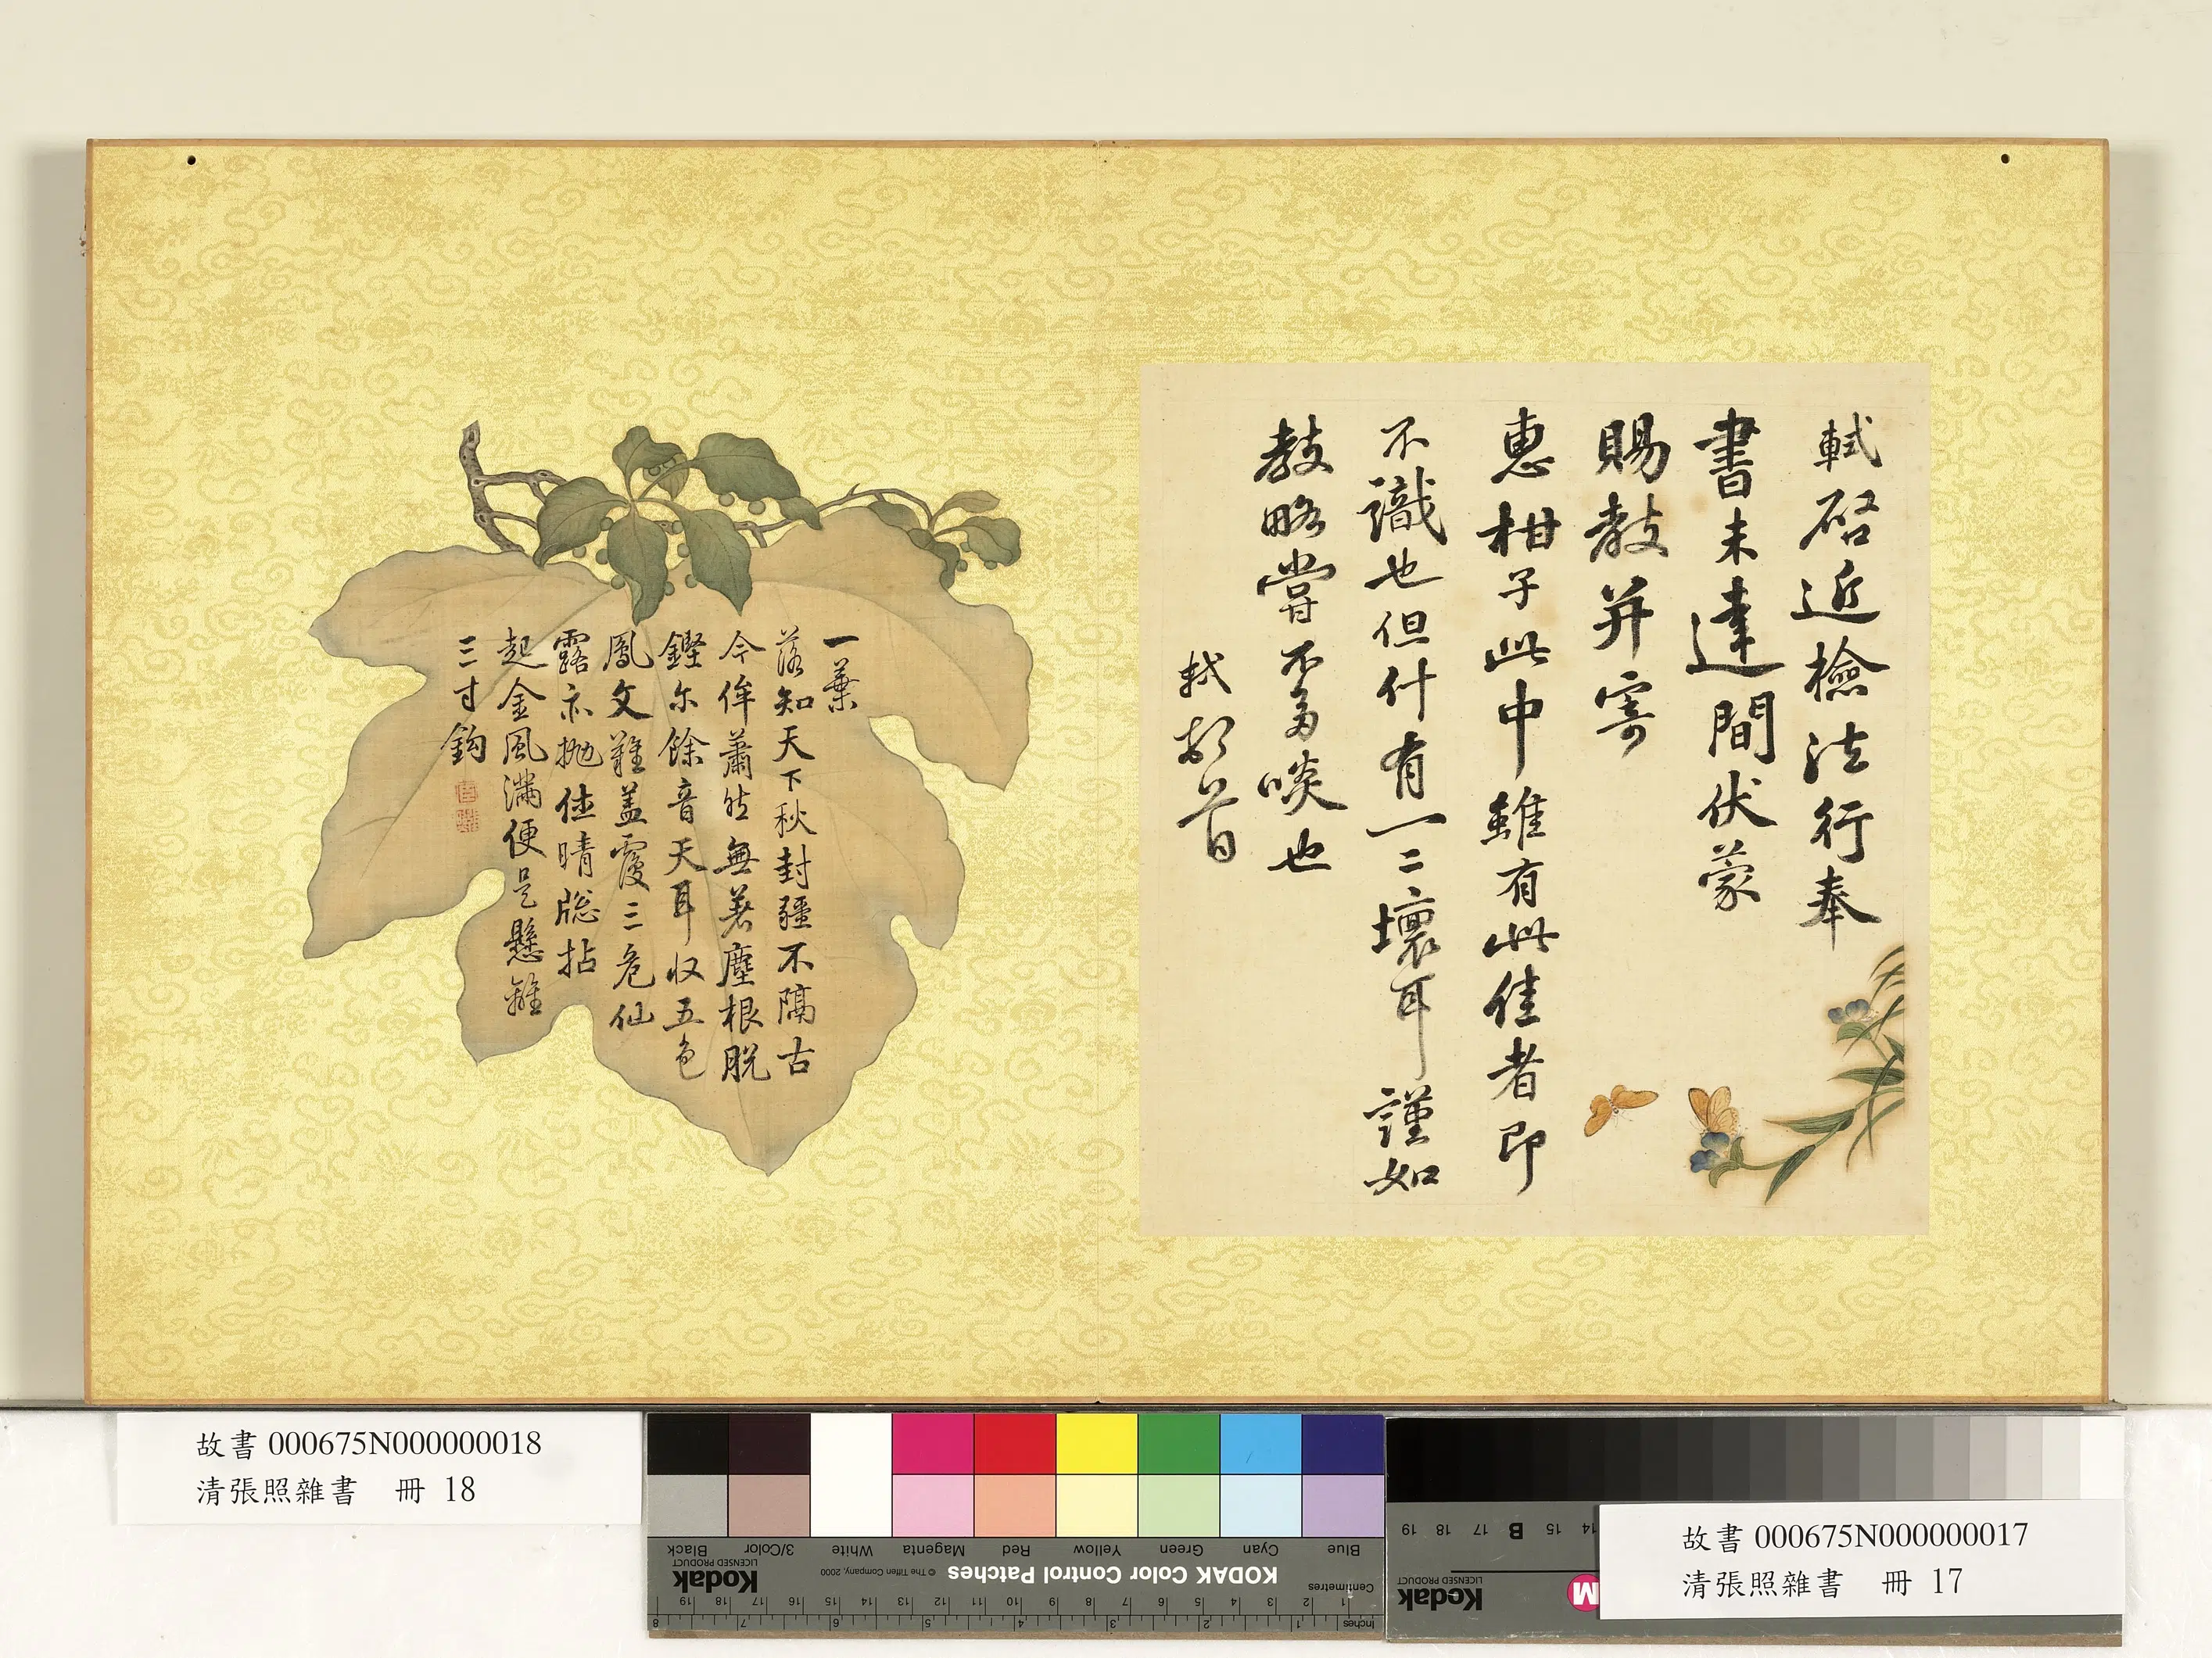 軾啓近檢法行奉
書未達間伏蒙
賜教并寄
惠柑子此中雖有此佳者即
不識也但什有一二壞耳謹如
教略嘗不多啖也
軾頓首
一葉
落知天下秋封疆不隔古
今侔蕭然無著塵根脫
鏗尔餘音天耳収五色
鳳文難盖覆三危仙
露亦拋
佳晴牕拈
起金風滿便是懸離
三寸鈎
故書 000675N000000018
清張照雜書 冊 18
Blue
Cyan
Green
Yellow
Red
Magenta
White
3/Color
Black
Centimetres
KODAK Color Control Patches
© The Tiffen Company, 2000
Kodak
LICENSED PRODUCT
1 2 3 4 5 6 7 8 9 10 11 12 13 14 15 16 17 18 19
Inches 1 2 3 4 5 6 7 8
14 15 B 17 18 19
M
Kodak
LICENSED PRODUCT
故書 000675N000000017
清張照雜書 冊 17